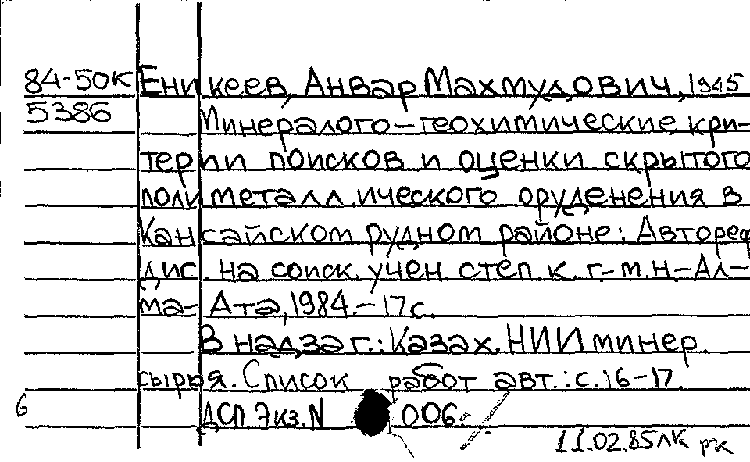 84-50К Еникеев, Анвар Махмудович, 1945
5386
Минералого-геохимические кри-
терии поисков и оценки скрытого
полиметаллического оруденения в
Кансайском рудном районе: Автореф
дис. на соиск. учен степ к. г-м.н-Ал-
ма-Ата, 1984.-17с.
В надзаг.: Казах. НИИ минер.
сырья. Список работ авт.: с.16-17.
6 ДСП Экз.N 006.
11.02.85лк рк